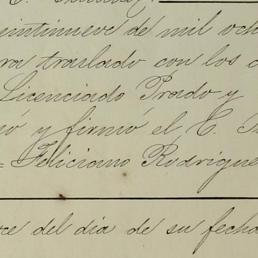 veintinueve de mil och
ra traslado con los a
Licenciado Prado y
ó y firmó el C. Ju
= Feliciano Rodrigue
ce del dia de su fecha